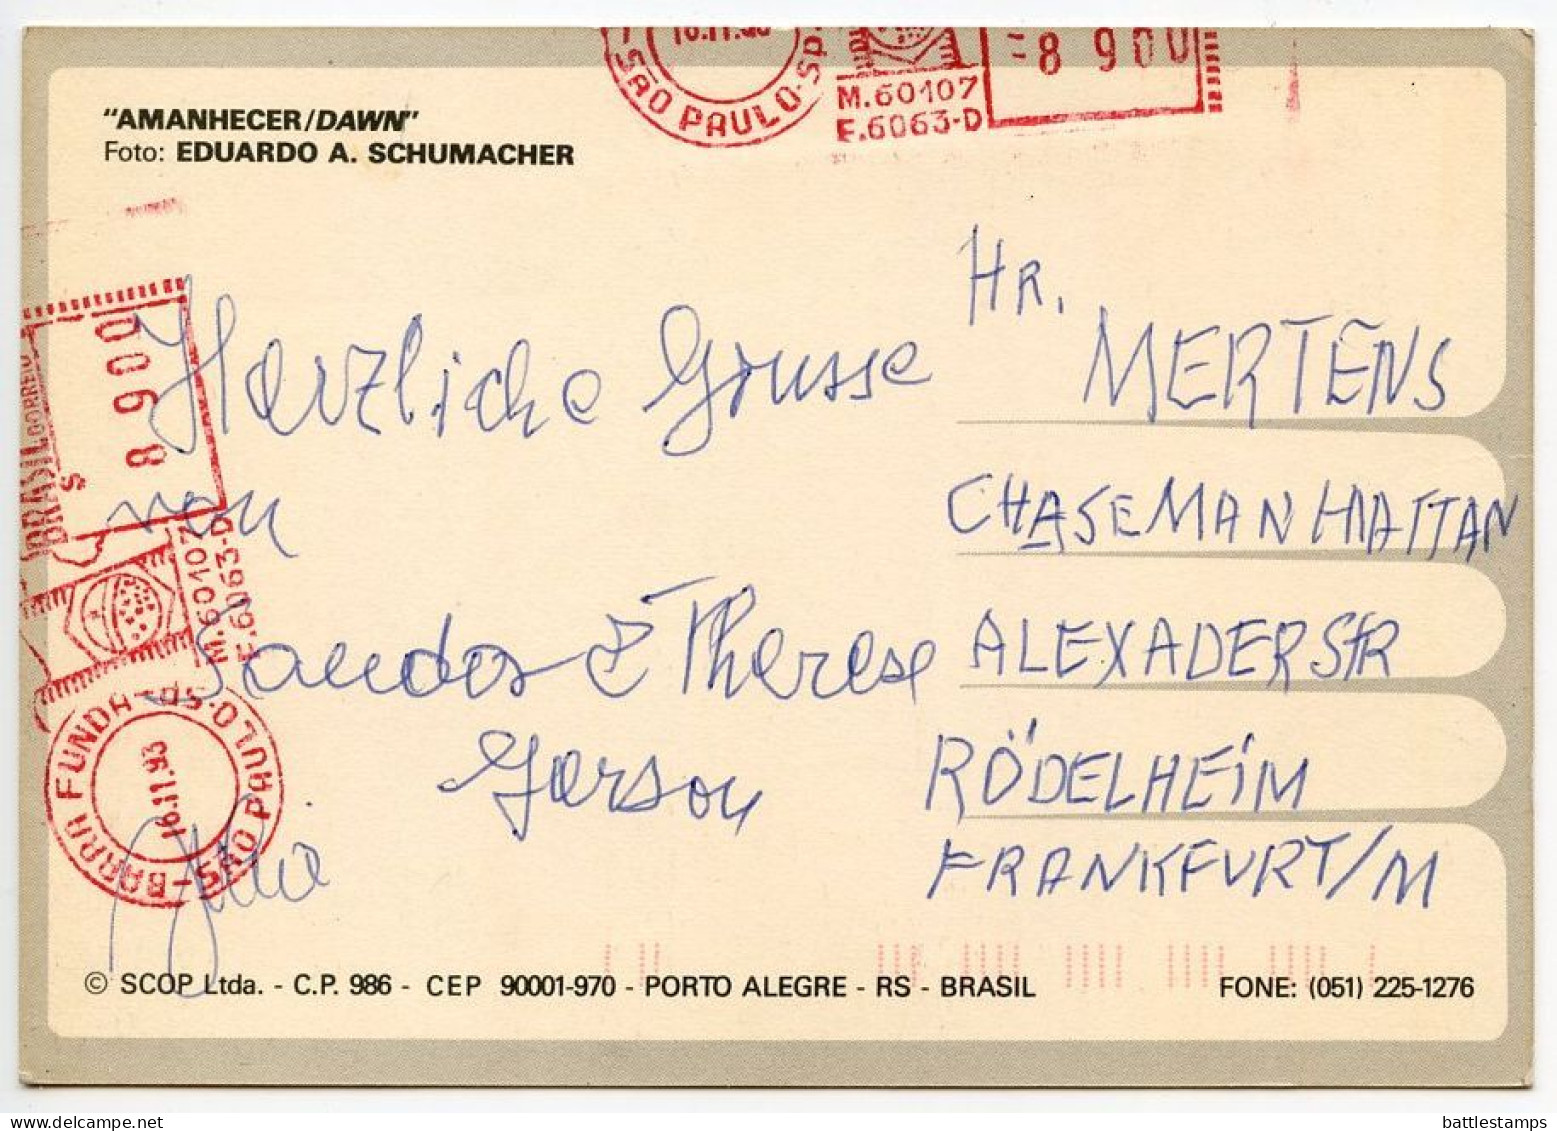 "AMANHECER/DAWN"
Foto: EDUARDO A. SCHUMACHER
SÃO PAULO-SP.
M.60107
F.6063-D
8 900
HR.
MERTENS
CHASEMANHATTAN
ALEXADERSTR
RÖDELHEIM
FRANKFURT/M
Herzliche Grusse
von
Sandor & Therese
Gerson
BRASIL CORREIO
BRASIL
S
8 900
M.60107
F.6063-D
BARRA FUNDA-SP
SÃO PAULO-
16.11.93
© SCOP Ltda. - C.P. 986 - CEP 90001-970 - PORTO ALEGRE - RS - BRASIL FONE: (051) 225-1276
battlestamps